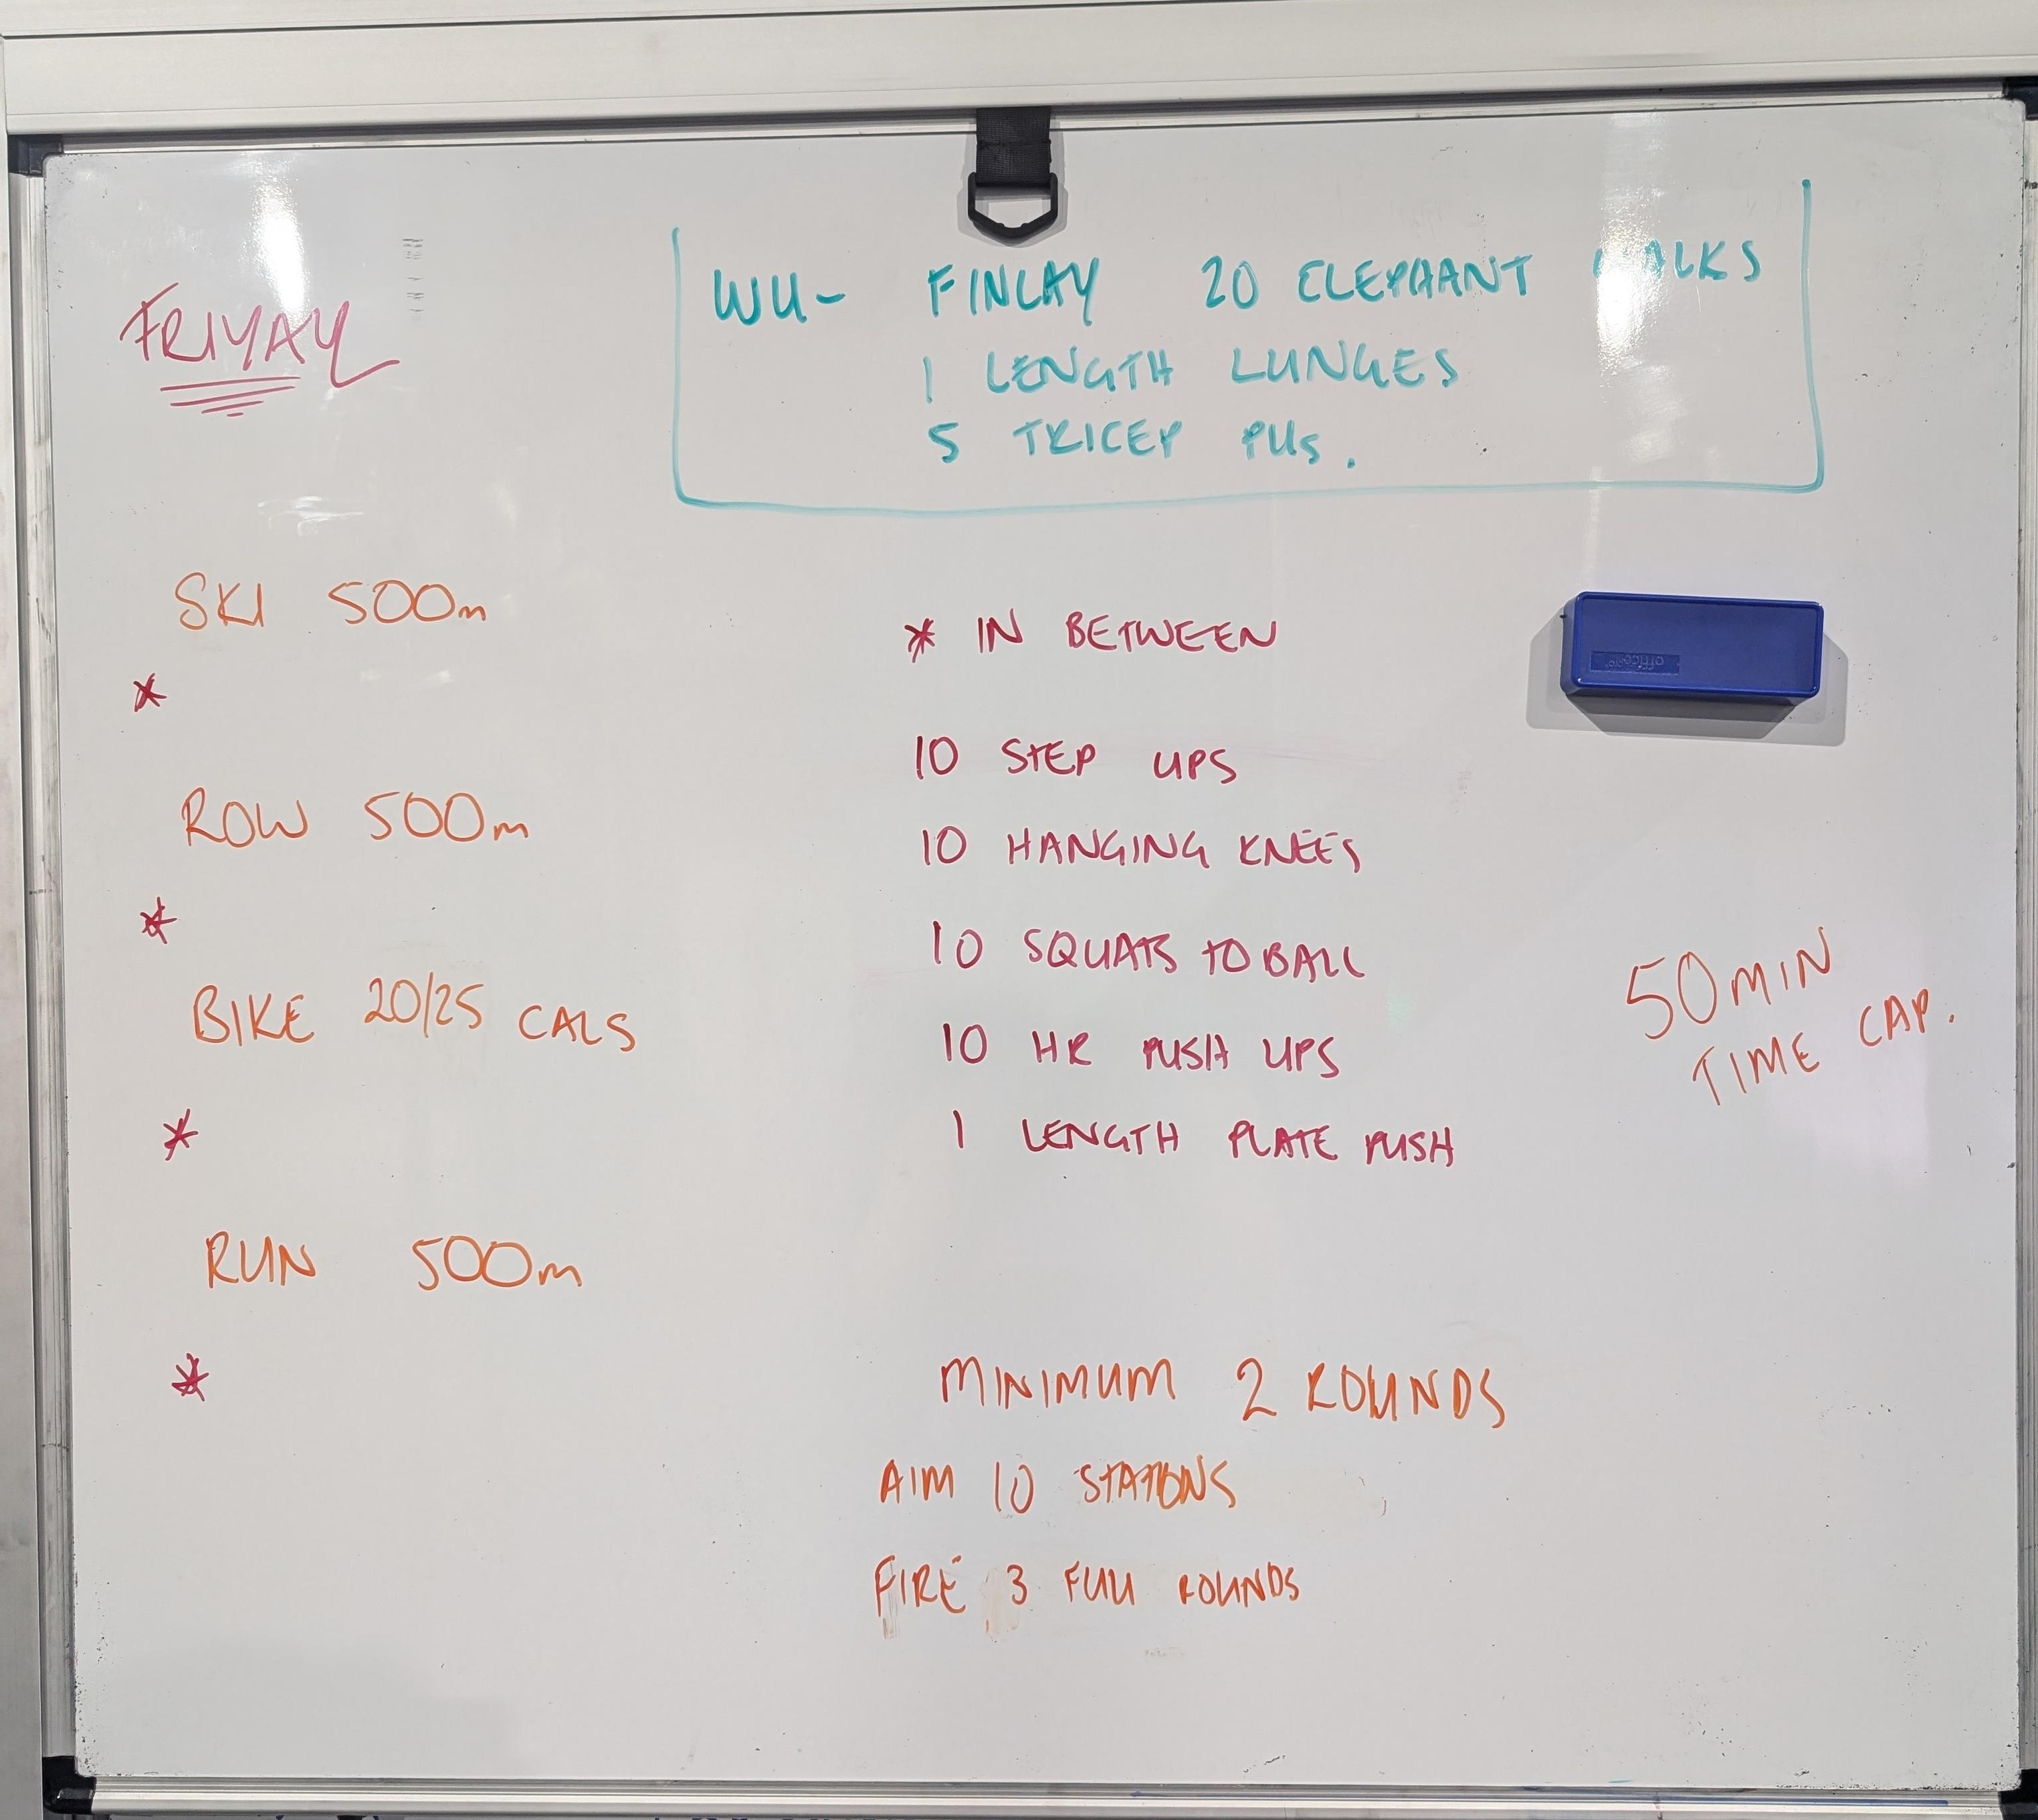 FRIYAY
WU- FINLAY 20 ELEPHANT WALKS
1 LENGTH LUNGES
5 TRICEP PUs.
SKI 500m
*
ROW 500m
*
BIKE 20/25 CALS
*
RUN 500m
*
* IN BETWEEN
10 STEP UPS
10 HANGING KNEES
10 SQUATS TO BALL
10 HR PUSH UPS
1 LENGTH PLATE PUSH
50 MIN
TIME CAP.
MINIMUM 2 ROUNDS
AIM 10 STATIONS
FIRE 3 FULL ROUNDS